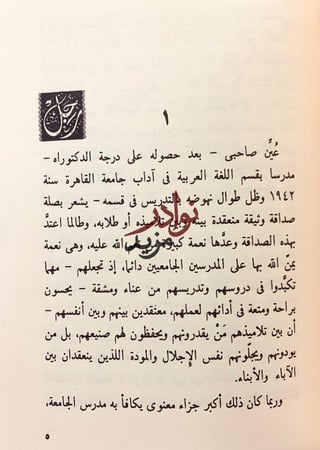 رجل
١
عُيِّن صاحبى - بعد حصوله على درجة الدكتوراه -
مدرسا بقسم اللغة العربية فى آداب جامعة القاهرة سنة
١٩٤٢ وظل طوال نهوضه بالتدريس فى قسمه - يشعر بصلة
صداقة وثيقة منعقدة بينه وبين تلاميذه أو طلابه، وطالما اعتدَّ
بهذه الصداقة وعدَّها نعمة كبرى من الله عليه، وهى نعمة
يمنّ الله بها على المدرسين الجامعيين دائما، إذ تجعلهم - مهما
تكبَّدوا فى دروسهم وتدريسهم من عناء ومشقة - يحسون
براحة ومتعة فى أدائهم لعملهم، معتقدين بينهم وبين أنفسهم -
أن بين تلاميذهم مَنْ يقدرونهم ويحفظون لهم صنيعهم، بل من
يودونهم ويجلّونهم نفس الإجلال والمودة اللذين ينعقدان بين
الآباء والأبناء.
وربما كان ذلك أكبر جزاء معنوى يكافأ به مدرس الجامعة،
٥
نوادر